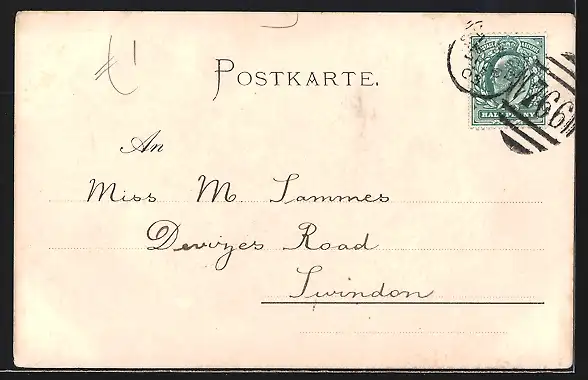 POSTKARTE.
HALFPENNY
An
Miss M. Sammes
Devizes Road
Swindon